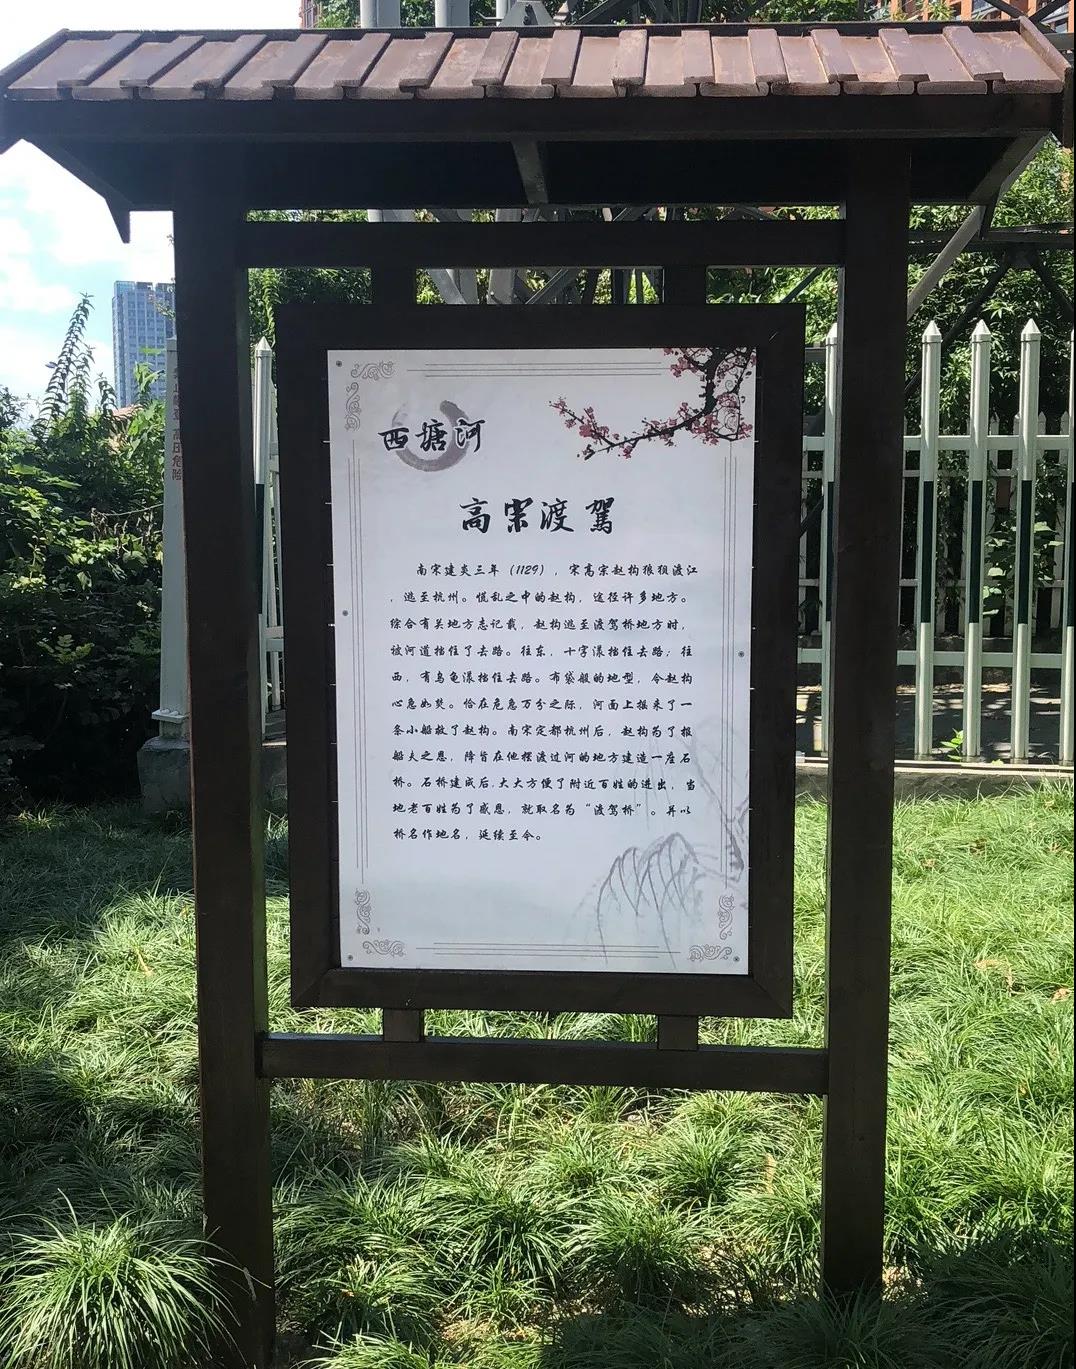 西塘河
高宗渡驾
南宋建炎三年（1129），宋高宗赵构狼狈渡江
，逃至杭州。慌乱之中的赵构，途径许多地方。
综合有关地方志记载，赵构逃至渡驾桥地方时，
被河道挡住了去路。往东，十字漾挡住去路；往
西，有乌龟漾挡住去路。布袋般的地型，令赵构
心急如焚。恰在危急万分之际，河面上摇来了一
条小船救了赵构。南宋定都杭州后，赵构为了报
船夫之恩，降旨在他摆渡过河的地方建造一座石
桥。石桥建成后，大大方便了附近百姓的进出，当
地老百姓为了感恩，就取名为“渡驾桥”。并以
桥名作地名，延续至今。
高压危险